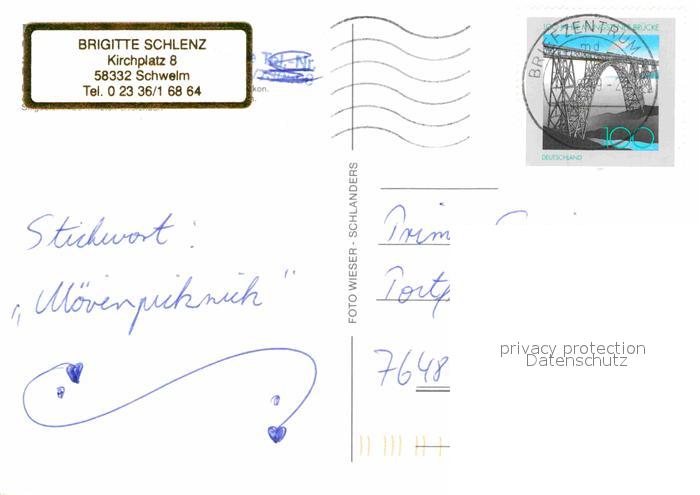 BRIGITTE SCHLENZ
Kirchplatz 8
58332 Schwelm
Tel. 0 23 36/1 68 64
Tel.-Nr.
kon.
BRÜCKE
BRIEFZENTRUM
md
100
DEUTSCHLAND
FOTO WIESER - SCHLANDERS
Stichwort:
„Mövenpiknik"
Prim
7648
privacy protection
Datenschutz